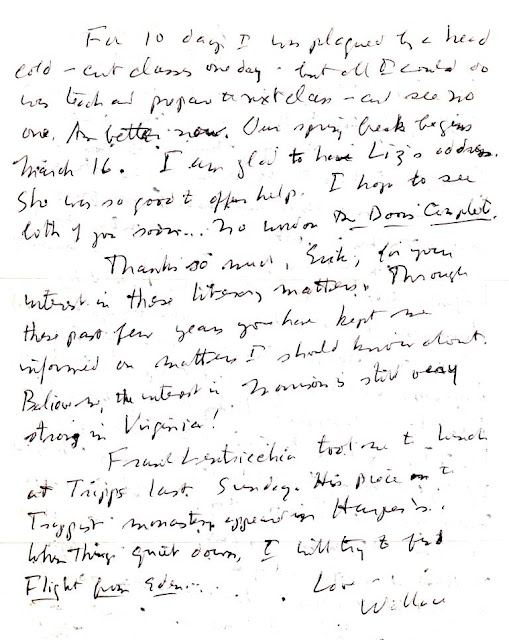 For 10 days I was plagued by a head
cold – cut classes one day – but all I could do
was teach and prepare the next class – and see no
one. Am better now. Our spring break begins
March 16. I am glad to have Liz's address.
She was so good to offer help. I hope to see
both of you soon... No word on The Doors Complete.
Thanks so much, Erik, for your
interest in these literary matters. Through
these past few years you have kept me
informed on matters I should know about.
Believe me, the interest in Morrison is still very
strong in Virginia!
Frank Lentricchia took me to lunch
at Tripps last Sunday. His piece on the
Trappist monastery appeared in Harper's.
When things quiet down, I will try to find
Flight from Eden...
Love –
Wallace